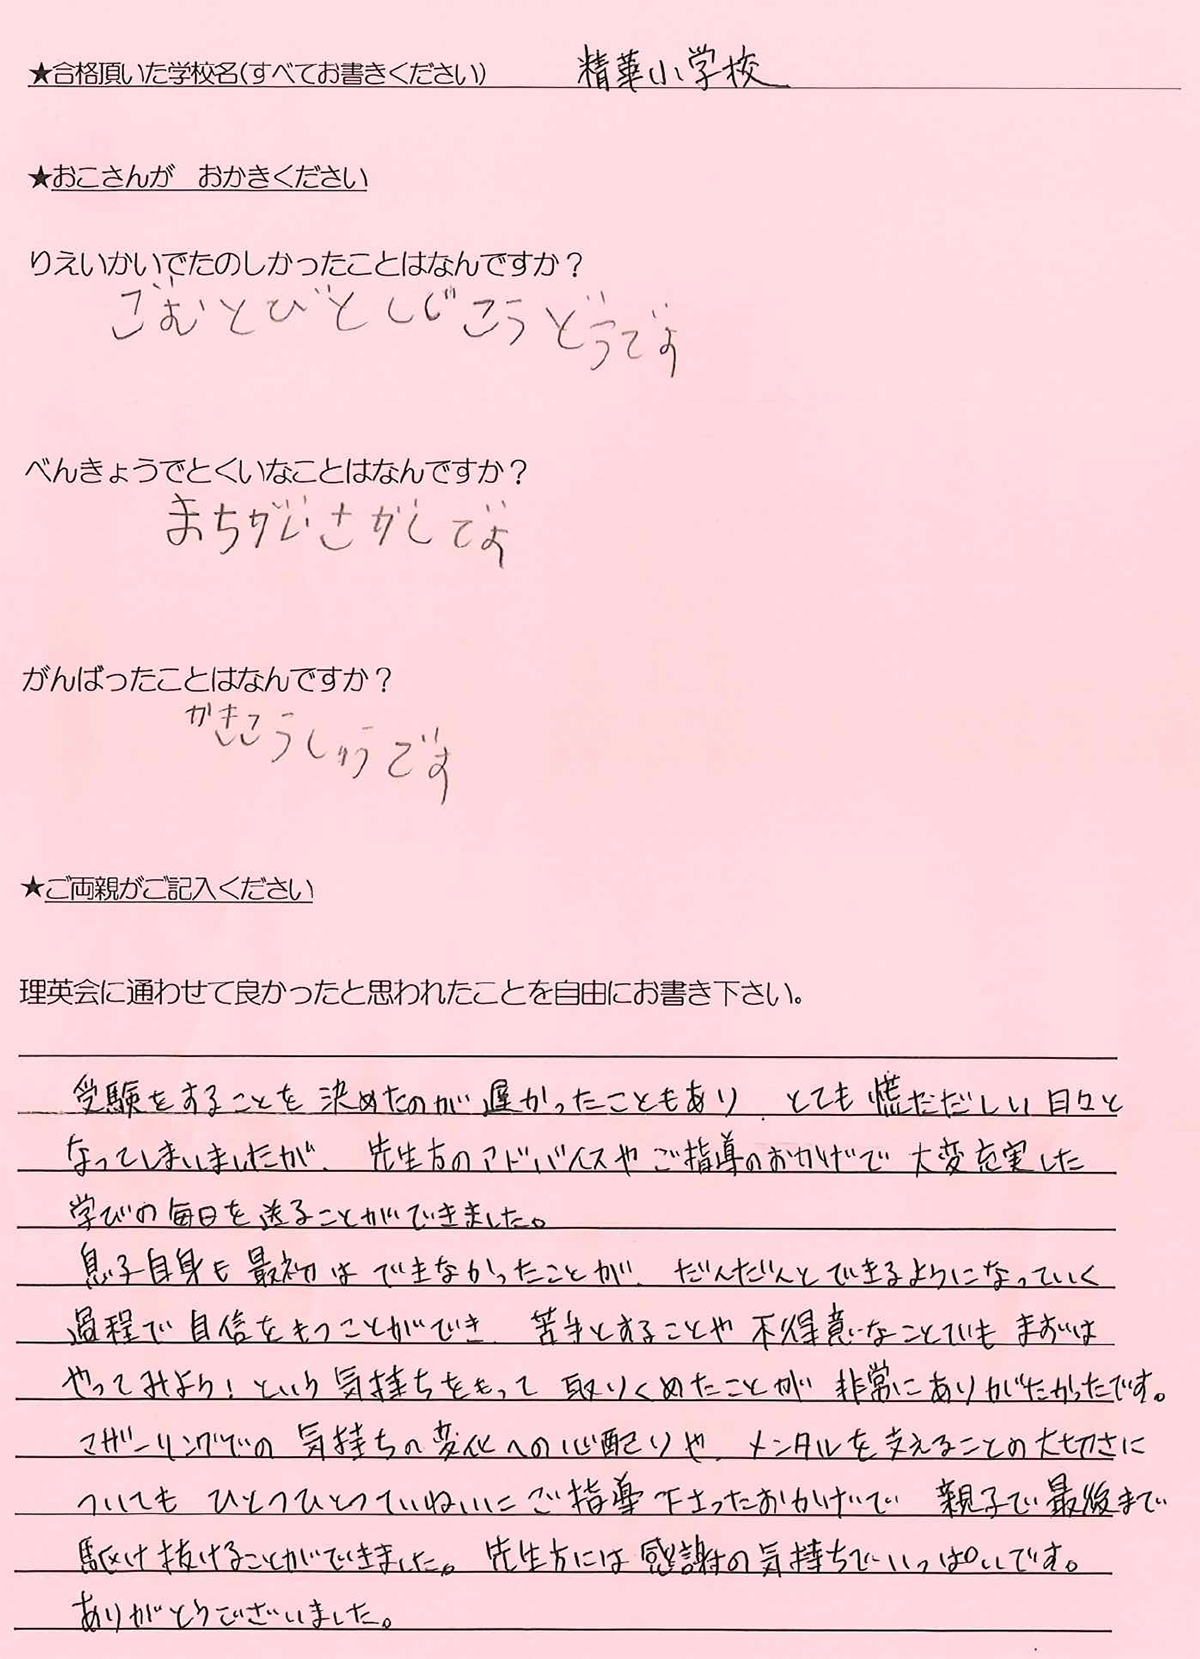 ★合格頂いた学校名(すべてお書きください) 精華小学校
★おこさんが おかきください
りえいかいでたのしかったことはなんですか？
ごむとびとしじこうどうです
べんきょうでとくいなことはなんですか？
まちがいさがしです
がんばったことはなんですか？
かきこうしゅうです
★ご両親がご記入ください
理英会に通わせて良かったと思われたことを自由にお書き下さい。
受験をすることを決めたのが遅かったこともあり、とても慌ただしい日々と
なってしまいましたが、先生方のアドバイスやご指導のおかげで大変充実した
学びの毎日を送ることができました。
息子自身も最初はできなかったことが、だんだんとできるようになっていく
過程で自信をもつことができ、苦手とすることや不得意なことでもまずは
やってみよう！という気持ちをもって取りくめたことが非常にありがたかったです。
マザーリングでの気持ちの変化への心配りや、メンタルを支えることの大切さに
ついてもひとつひとつていねいにご指導下さったおかげで親子で最後まで
駆け抜けることができました。先生方には感謝の気持ちでいっぱいです。
ありがとうございました。